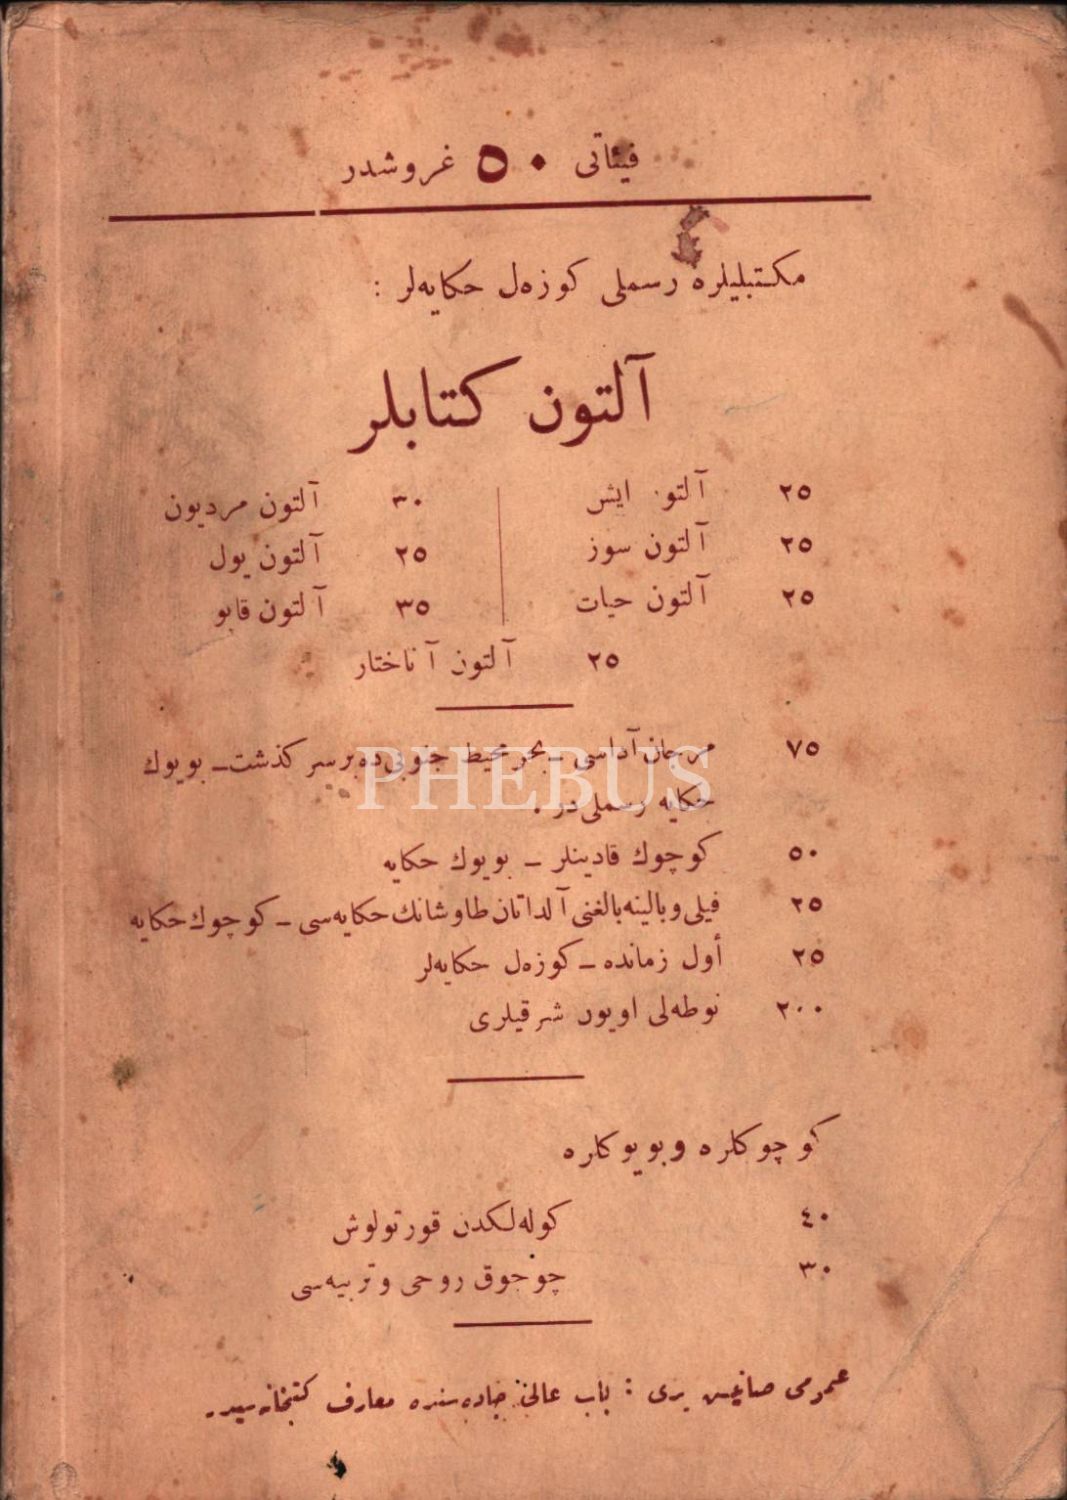 فیئاتی ٥٠ غروشدر
مکتبلیلره رسملی کوزەل حکایەلر :
آلتون کتابلر
٢٥ آلتون ایش
٢٥ آلتون سوز
٢٥ آلتون حیات
٣٠ آلتون مردیون
٢٥ آلتون یول
٣٥ آلتون قاپو
٢٥ آلتون آناختار
٧٥ مرجان آداسی ـ بحر محیط جنوبی‌ده بر سرکذشت ـ بویوك
حکایه رسملی‌در .
PHEBUS
٥٠ کوچوك قادینلر ـ بویوك حکایه
٢٥ فیلی و بالینه بالغنی آلداتان طاوشانك حکایه‌سی ـ کوچوك حکایه
٢٥ أول زمانده ـ کوزەل حکایەلر
٢٠٠ نوطه‌لی اویون شرقیلری
کوچوکلره وبویوکلره
٤٠ کوله‌لکدن قورتولوش
٣٠ چوجوق روحی وتربیه‌سی
عمومی صاتیش یری : باب عالی جاده‌سنده معارف کتبخانه‌سیدر.